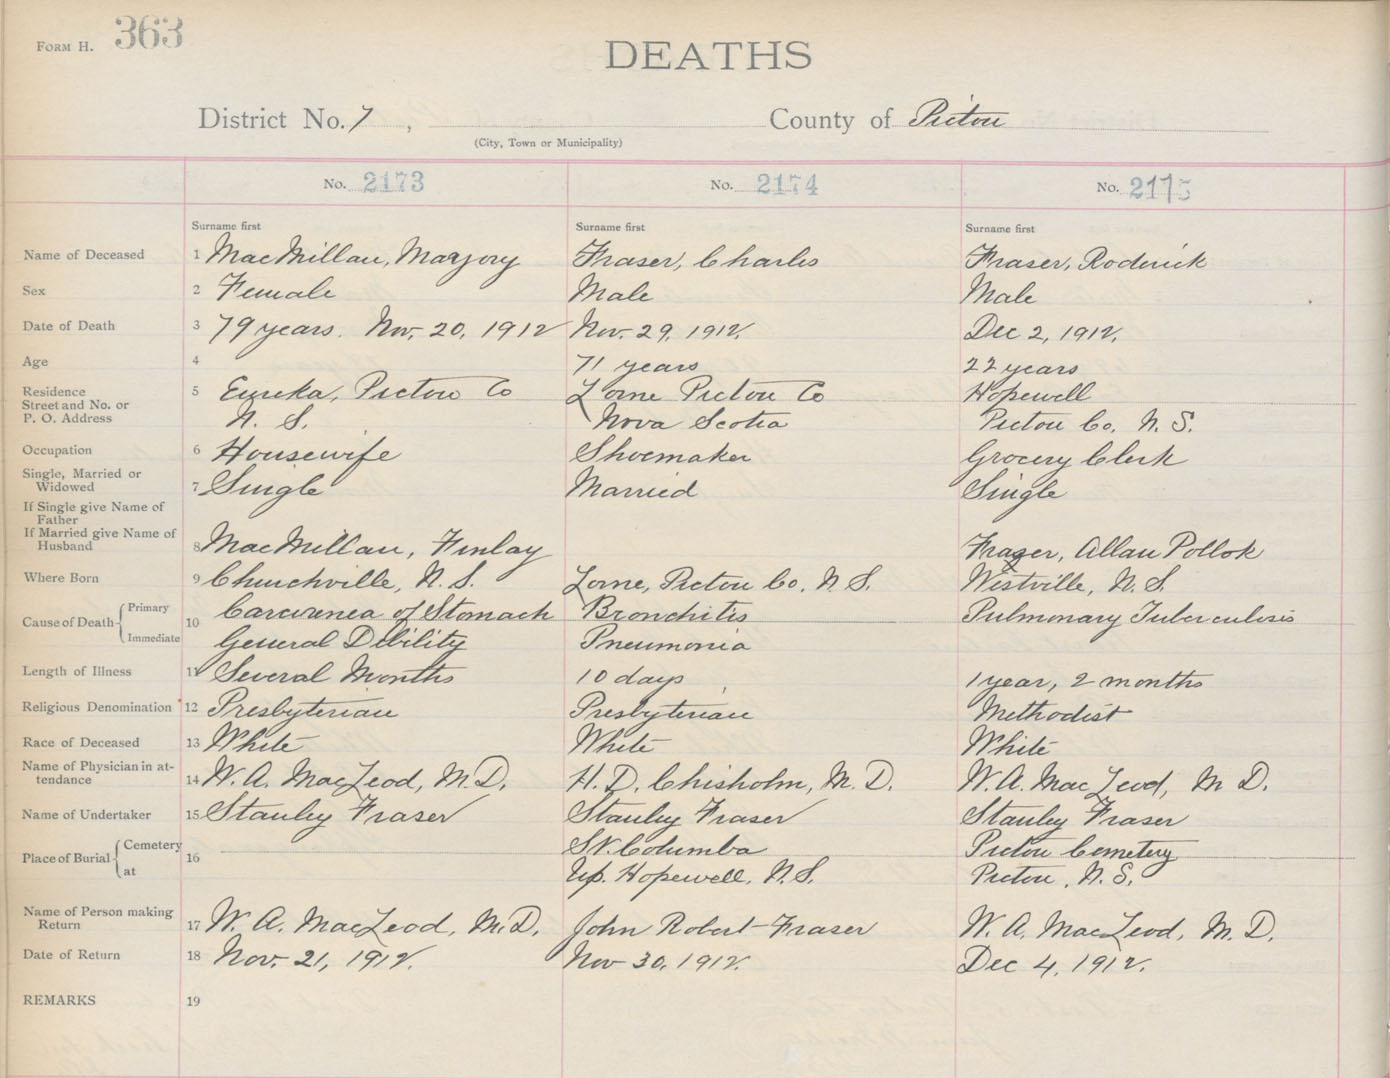 FORM H. 363
DEATHS
District No. 7, County of Pictou
(City, Town or Municipality)
No. 2173 No. 2174 No. 2175
Surname first Surname first Surname first
Name of Deceased 1 MacMillan, Marjory Fraser, Charles Fraser, Roderick
Sex 2 Female Male Male
Date of Death 3 79 years. Nov. 20, 1912 Nov. 29, 1912. Dec 2, 1912.
Age 4 71 years 22 years
Residence 5 Eureka, Pictou Co Lorne Pictou Co Hopewell
Street and No. or
P. O. Address N. S. Nova Scotia Pictou Co. N. S.
Occupation 6 Housewife Shoemaker Grocery Clerk
Single, Married or
Widowed 7 Single Married Single
If Single give Name of
Father
If Married give Name of
Husband 8 MacMillan, Finlay Fraser, Allan Pollok
Where Born 9 Churchville, N. S. Lorne, Pictou Co. N. S. Westville, N. S.
Cause of Death Primary 10 Carcwenea of Stomach Bronchitis Pulmonary Tuberculosis
Immediate General Debility Pneumonia
Length of Illness 11 Several Months 10 days 1 year, 2 months
Religious Denomination 12 Presbyterian Presbyterian Methodist
Race of Deceased 13 White White White
Name of Physician in at-
tendance 14 W. A. MacLeod, M. D. H. D. Chisholm, M. D. W. A. MacLeod, M D.
Name of Undertaker 15 Stanley Fraser Stanley Fraser Stanley Fraser
Place of Burial Cemetery 16 St. Columba Pictou Cemetery
at Up. Hopewell, N. S. Pictou, N. S.
Name of Person making
Return 17 W. A. MacLeod, M. D. John Robert Fraser W. A. MacLeod, M. D.
Date of Return 18 Nov. 21, 1912. Nov 30, 1912. Dec 4, 1912.
REMARKS 19